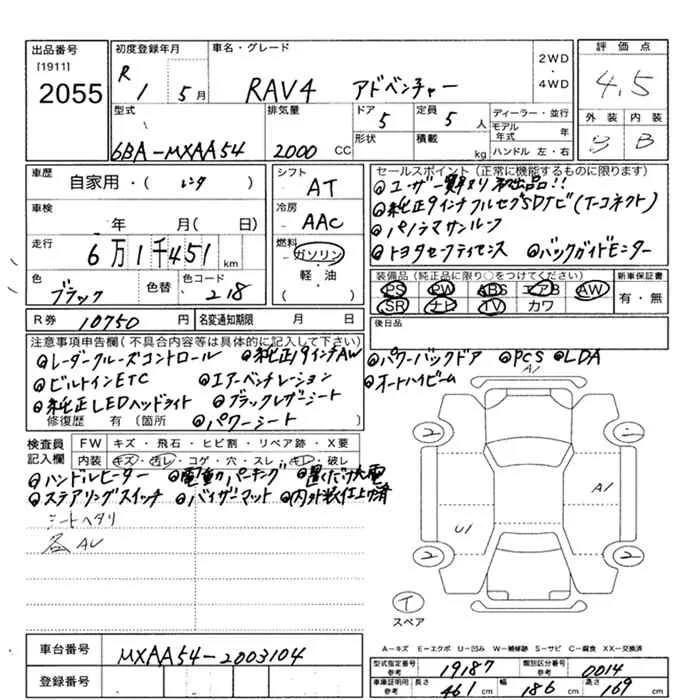 出品番号
[1911]
2055
初度登録年月
R 1 5月
車名・グレード
RAV4 アドベンチャー
2WD
・
4WD
評価点
4.5
外装 内装
B B
型式
6BA-MXAA54
排気量
2000 CC
ドア
5
形状
定員
5人
積載
kg
ディーラー・並行
モデル年式 年
ハンドル 左・右
車歴
自家用・( レンタ )
車検
年 月( 日)
走行
6万1千451 km
色
ブラック
色替
色コード
218
シフト
AT
冷房
AAC
燃料
ガソリン
軽・油
( )
セールスポイント(正常に機能するものに限ります)
◎ユーザー買取り 初出品!!
◎純正9インチフルセグSDナビ(T-コネクト)
◎パノラマサンルーフ
◎トヨタセーフティセンス ◎バックガイドモニター
装備品(純正品に限り○をつけてください)
PS PW ABS エアB AW
SR ナビ TV カワ
新車保証書
有・無
R券 10750円
名変通知期限 月 日
後日品
注意事項申告欄(不具合内容等は具体的に記入して下さい)
◎レーダークルーズコントロール ◎純正19インチAW
◎ビルトインETC ◎エアーベンチレーション
◎純正LEDヘッドライト ◎ブラックレザーシート
修復歴 有 (箇所 ◎パワーシート )
◎パワーバックドア ◎PCS ◎LDA
◎オートハイビーム
検査員記入欄
FW キズ・飛石・ヒビ割・リペア跡・X要
内装 キズ・汚レ・コゲ・穴・スレ・キレ・破レ
◎ハンドルヒーター ◎電動パーキング ◎置くだけ充電
◎ステアリングスイッチ ◎バイザーマット ◎内外装仕上げ済
シートヘタリ
各AU
A1
2
2
A1
U1
2
2
イ
スペア
A-キズ E-エクボ U-凹み W-補修跡 S-サビ C-腐食 XX-交換済
車台番号
MXAA54-2003104
登録番号
型式指定番号 参考
19187
類別区分番号 参考
0014
車庫証明用 参考
長さ 461 cm
幅 186 cm
高さ 169 cm